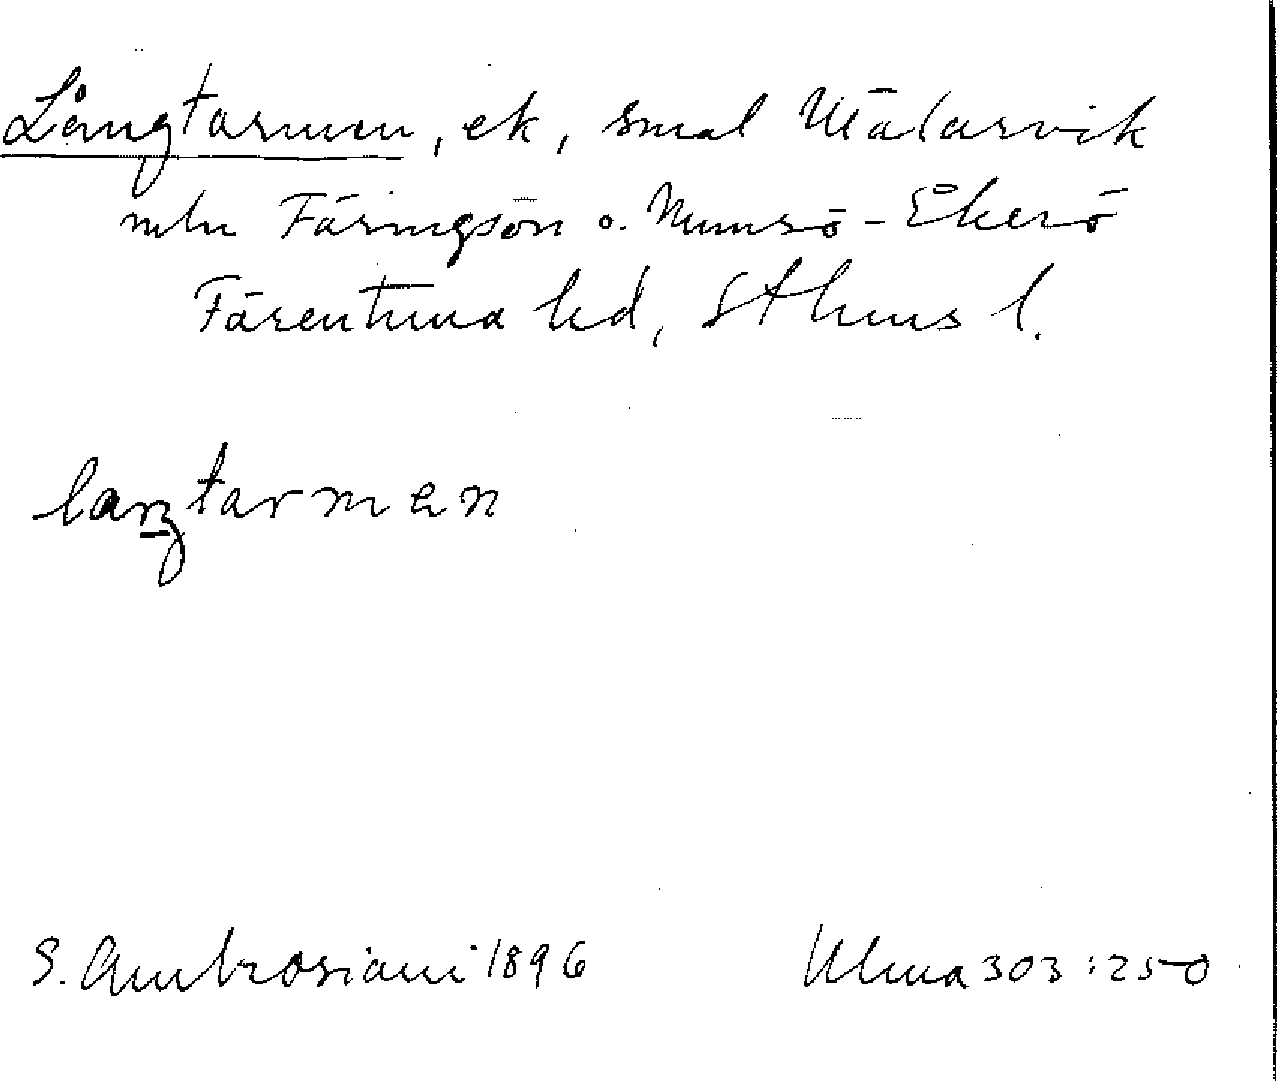 Långtarmen, ek, smal Mälarvik
mln Färingsön o. Munsö-Ekerö
Färentuna hd, Sthms l.
laŋtarmen
S. Ambrosiani 1896
Ulma 303:250